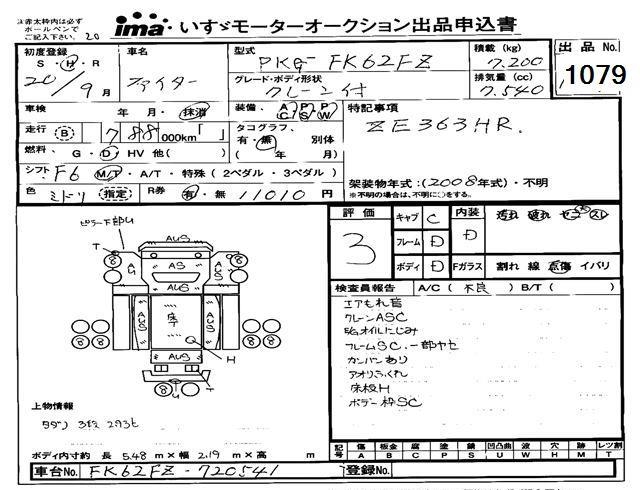 ※赤太枠内は必ず
ボールペンで
ご記入下さい。
20
ima いすゞモーターオークション出品申込書
初度登録
S・H・R
20/9月
車名
ファイター
型式
PKG-FK62FZ
積載(kg)
7,200
出品No.
1079
グレード・ボディ形状
クレーン付
排気量(cc)
7,540
車検
年 月・抹消
装備、
A/C P/S P/W
特記事項
ZE363HR.
走行
B
788 000km「 」
タコグラフ、
有・無 別体
( 年 月)
燃料、
G・D・HV 他( )
シフト
F6 M/T・A/T・特殊(2ペダル・3ペダル)
架装物年式:(2008年式)・不明
※不明の場合は、不明に○をする。
色
ミドリ 指定
R券
有・無 11010円
評価
3
キャブ C
フレーム D
ボディ D
内装
D
汚れ 破れ ヤニ スレ
Fガラス
割れ 線 点傷 イバリ
ピラー下部U
T
AUS
AS
AUS
A
U
AUS
AUS
床
T
H
AUS
T
U
8
検査員報告 A/C(不良)B/T( )
エアもれ音
クレーンASC
E/gオイルにじみ
フレームSC.一部ヤセ
カンバンあり
アオリふくれ
床板H
ボデー枠SC
上物情報
タダノ 3段
ボディ内寸約 長 5.48 m×幅 2.19 m×高 m
記号
傷 板金 腐 塗 錆 凹凸曲 波 穴 跡 レツ割
A B C P S U W H M T
車台No.
FK62FZ-720541
登録No.